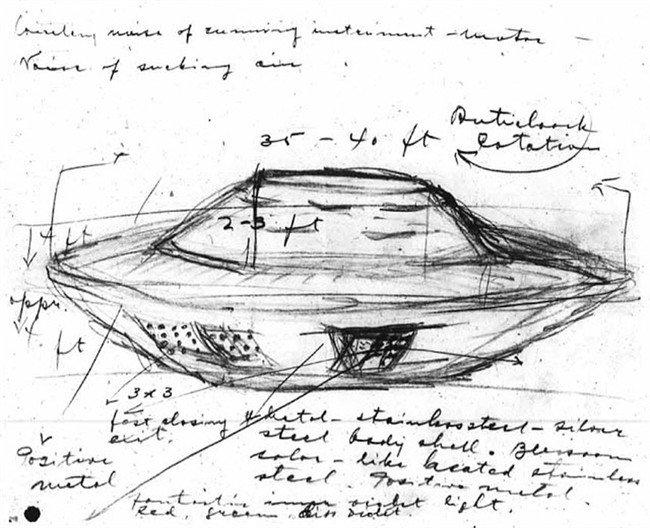 noise of running instrument - motor -
Noise of sucking air
35 - 40 ft
Anticlock
Rotation
2-3 ft
4 ft
appr.
4 ft
3x3
fast closing
exit.
Positive
metal
Metal - stainless steel - silver
steel body shell.
color - like heated stainless
steel. Positive metal.
fantastic inner violet light.
Red, green, violet.